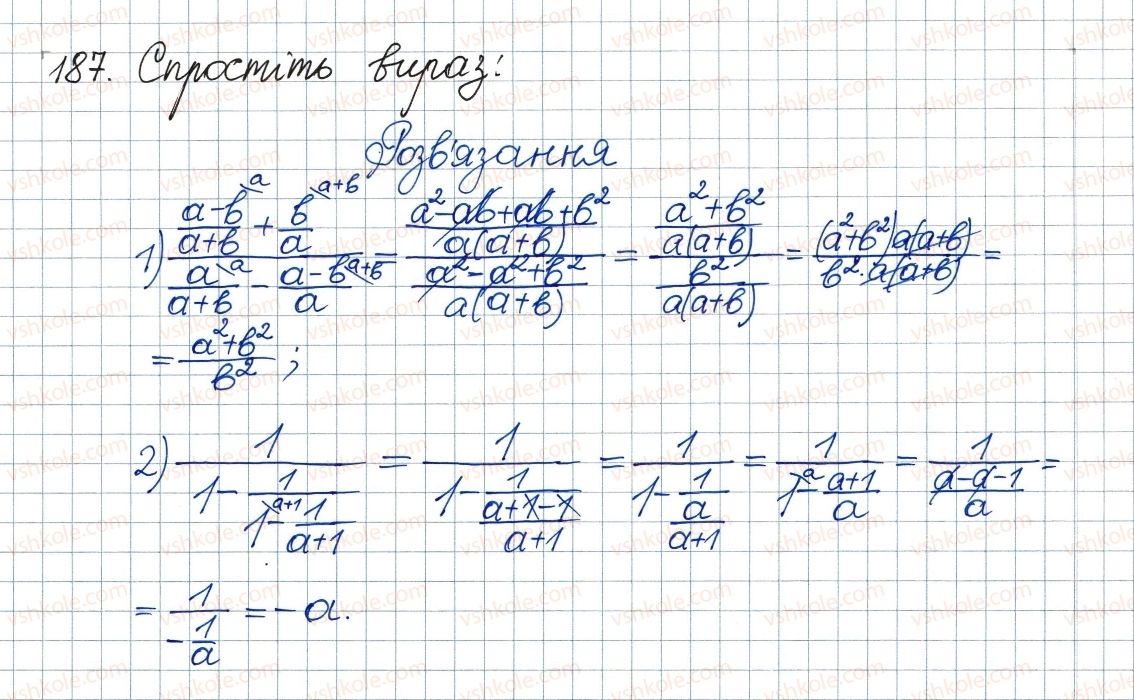 187. Спростіть вираз:
Розв'язання
1) \frac{\frac{a-b}{a+b}^{\backslash a} + \frac{b}{a}^{\backslash a+b}}{\frac{a}{a+b}^{\backslash a} - \frac{a-b}{a}^{\backslash a+b}} = \frac{\frac{a^2-ab+ab+b^2}{a(a+b)}}{\frac{a^2-a^2+b^2}{a(a+b)}} = \frac{\frac{a^2+b^2}{a(a+b)}}{\frac{b^2}{a(a+b)}} = \frac{(a^2+b^2)a(a+b)}{b^2 \cdot a(a+b)} =
= \frac{a^2+b^2}{b^2};
2) \frac{1}{1-\frac{1}{1^{\backslash a+1}-\frac{1}{a+1}}} = \frac{1}{1-\frac{1}{\frac{a+1-1}{a+1}}} = \frac{1}{1-\frac{1}{\frac{a}{a+1}}} = \frac{1}{1^{\backslash a}-\frac{a+1}{a}} = \frac{1}{\frac{a-a-1}{a}} =
= \frac{1}{-\frac{1}{a}} = -a.
vshkole.com